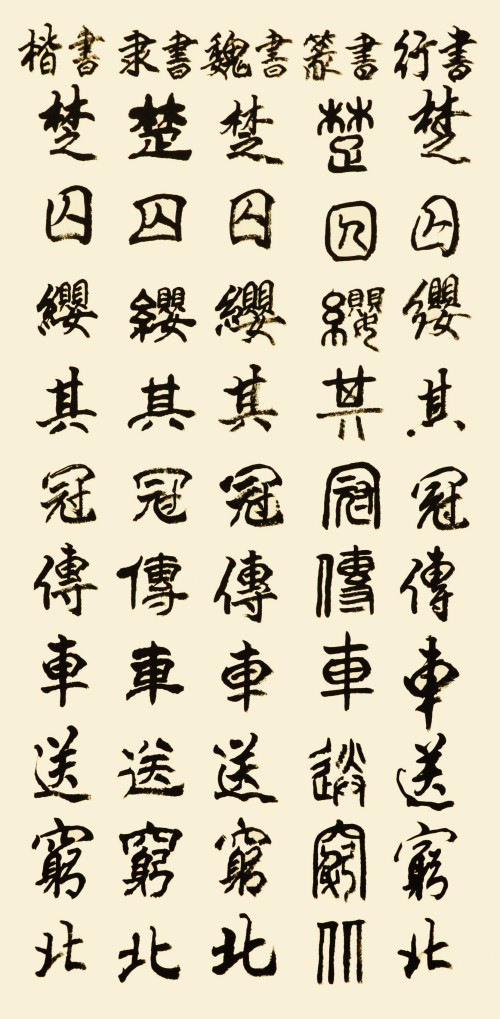 楷書 隶書 魏書 篆書 行書
楚 楚 楚 楚 楚
囚 囚 囚 囚 囚
纓 纓 纓 纓 纓
其 其 其 其 其
冠 冠 冠 冠 冠
傳 傳 傳 傳 傳
車 車 車 車 車
送 送 送 送 送
窮 窮 窮 窮 窮
北 北 北 北 北